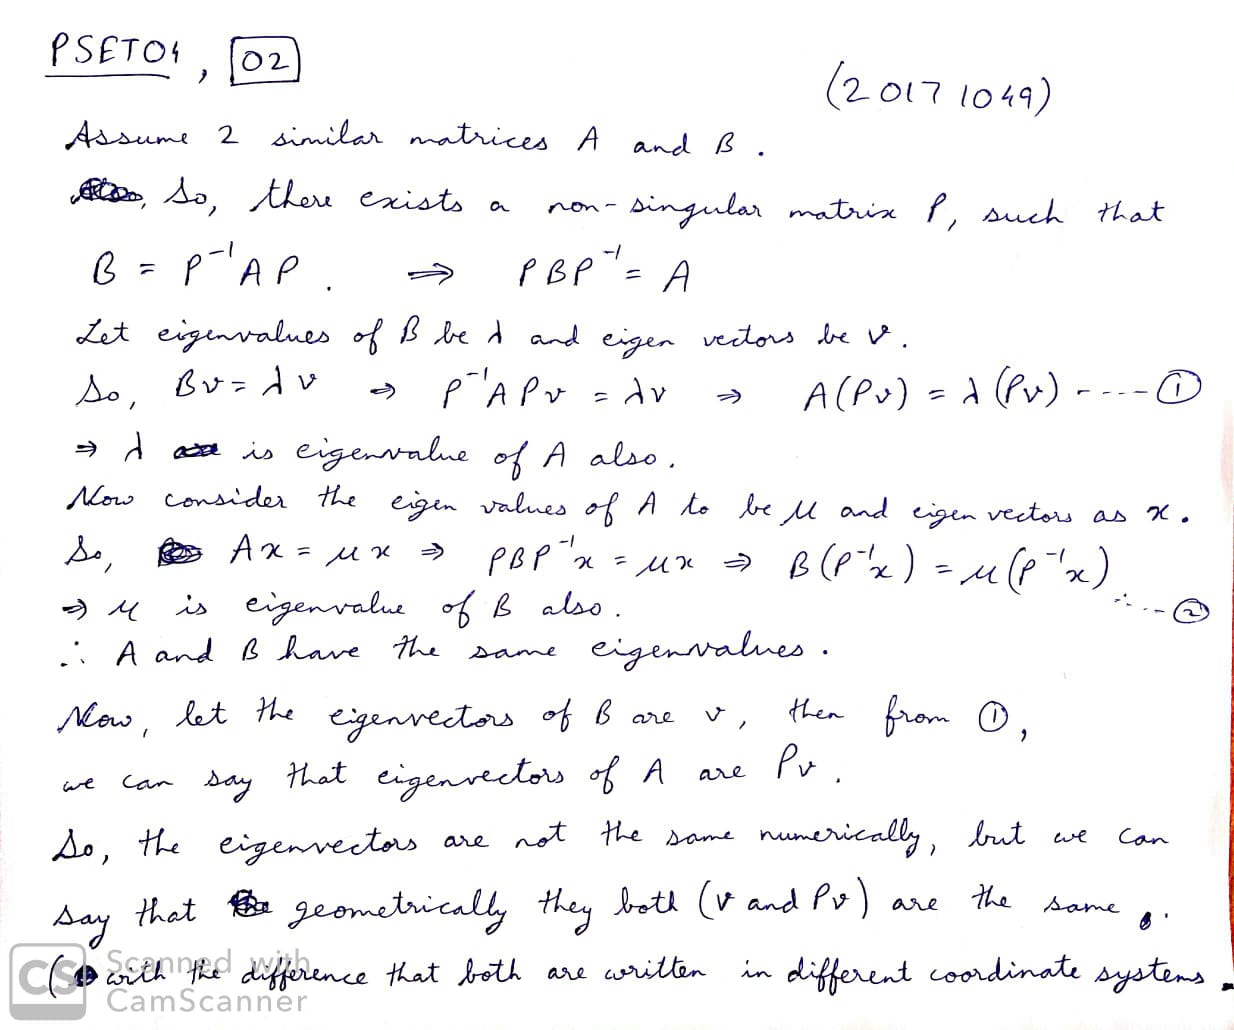 PSET04, 02
(20171049)
Assume 2 similar matrices A and B.
So, there exists a non-singular matrix P, such that
B = P⁻¹AP. ⇒ PBP⁻¹ = A
Let eigenvalues of B be λ and eigen vectors be v.
So, Bv = λv ⇒ P⁻¹APv = λv ⇒ A(Pv) = λ(Pv) ---- ①
⇒ λ is eigenvalue of A also.
Now consider the eigen values of A to be μ and eigen vectors as x.
So, Ax = μx ⇒ PBP⁻¹x = μx ⇒ B(P⁻¹x) = μ(P⁻¹x) ---- ②
⇒ μ is eigenvalue of B also.
∴ A and B have the same eigenvalues.
Now, let the eigenvectors of B are v, then from ①,
we can say that eigenvectors of A are Pv.
So, the eigenvectors are not the same numerically, but we can
say that geometrically they both (v and Pv) are the same.
(with the difference that both are written in different coordinate systems.
CS Scanned with
CamScanner